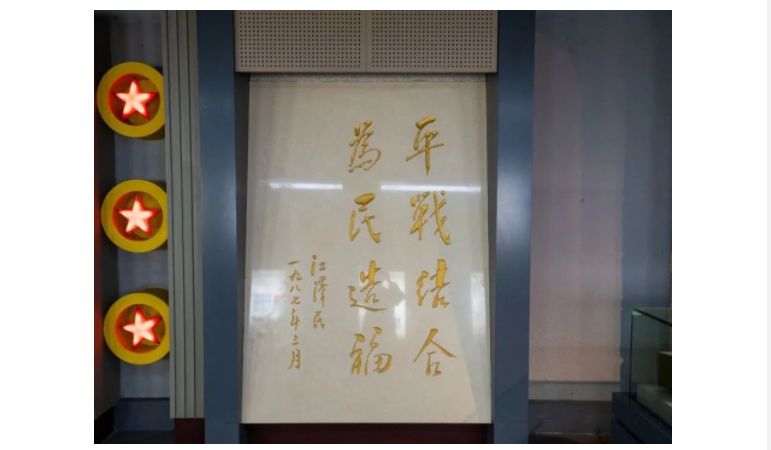 平戰结合
為民造福
江泽民
一九八七年三月